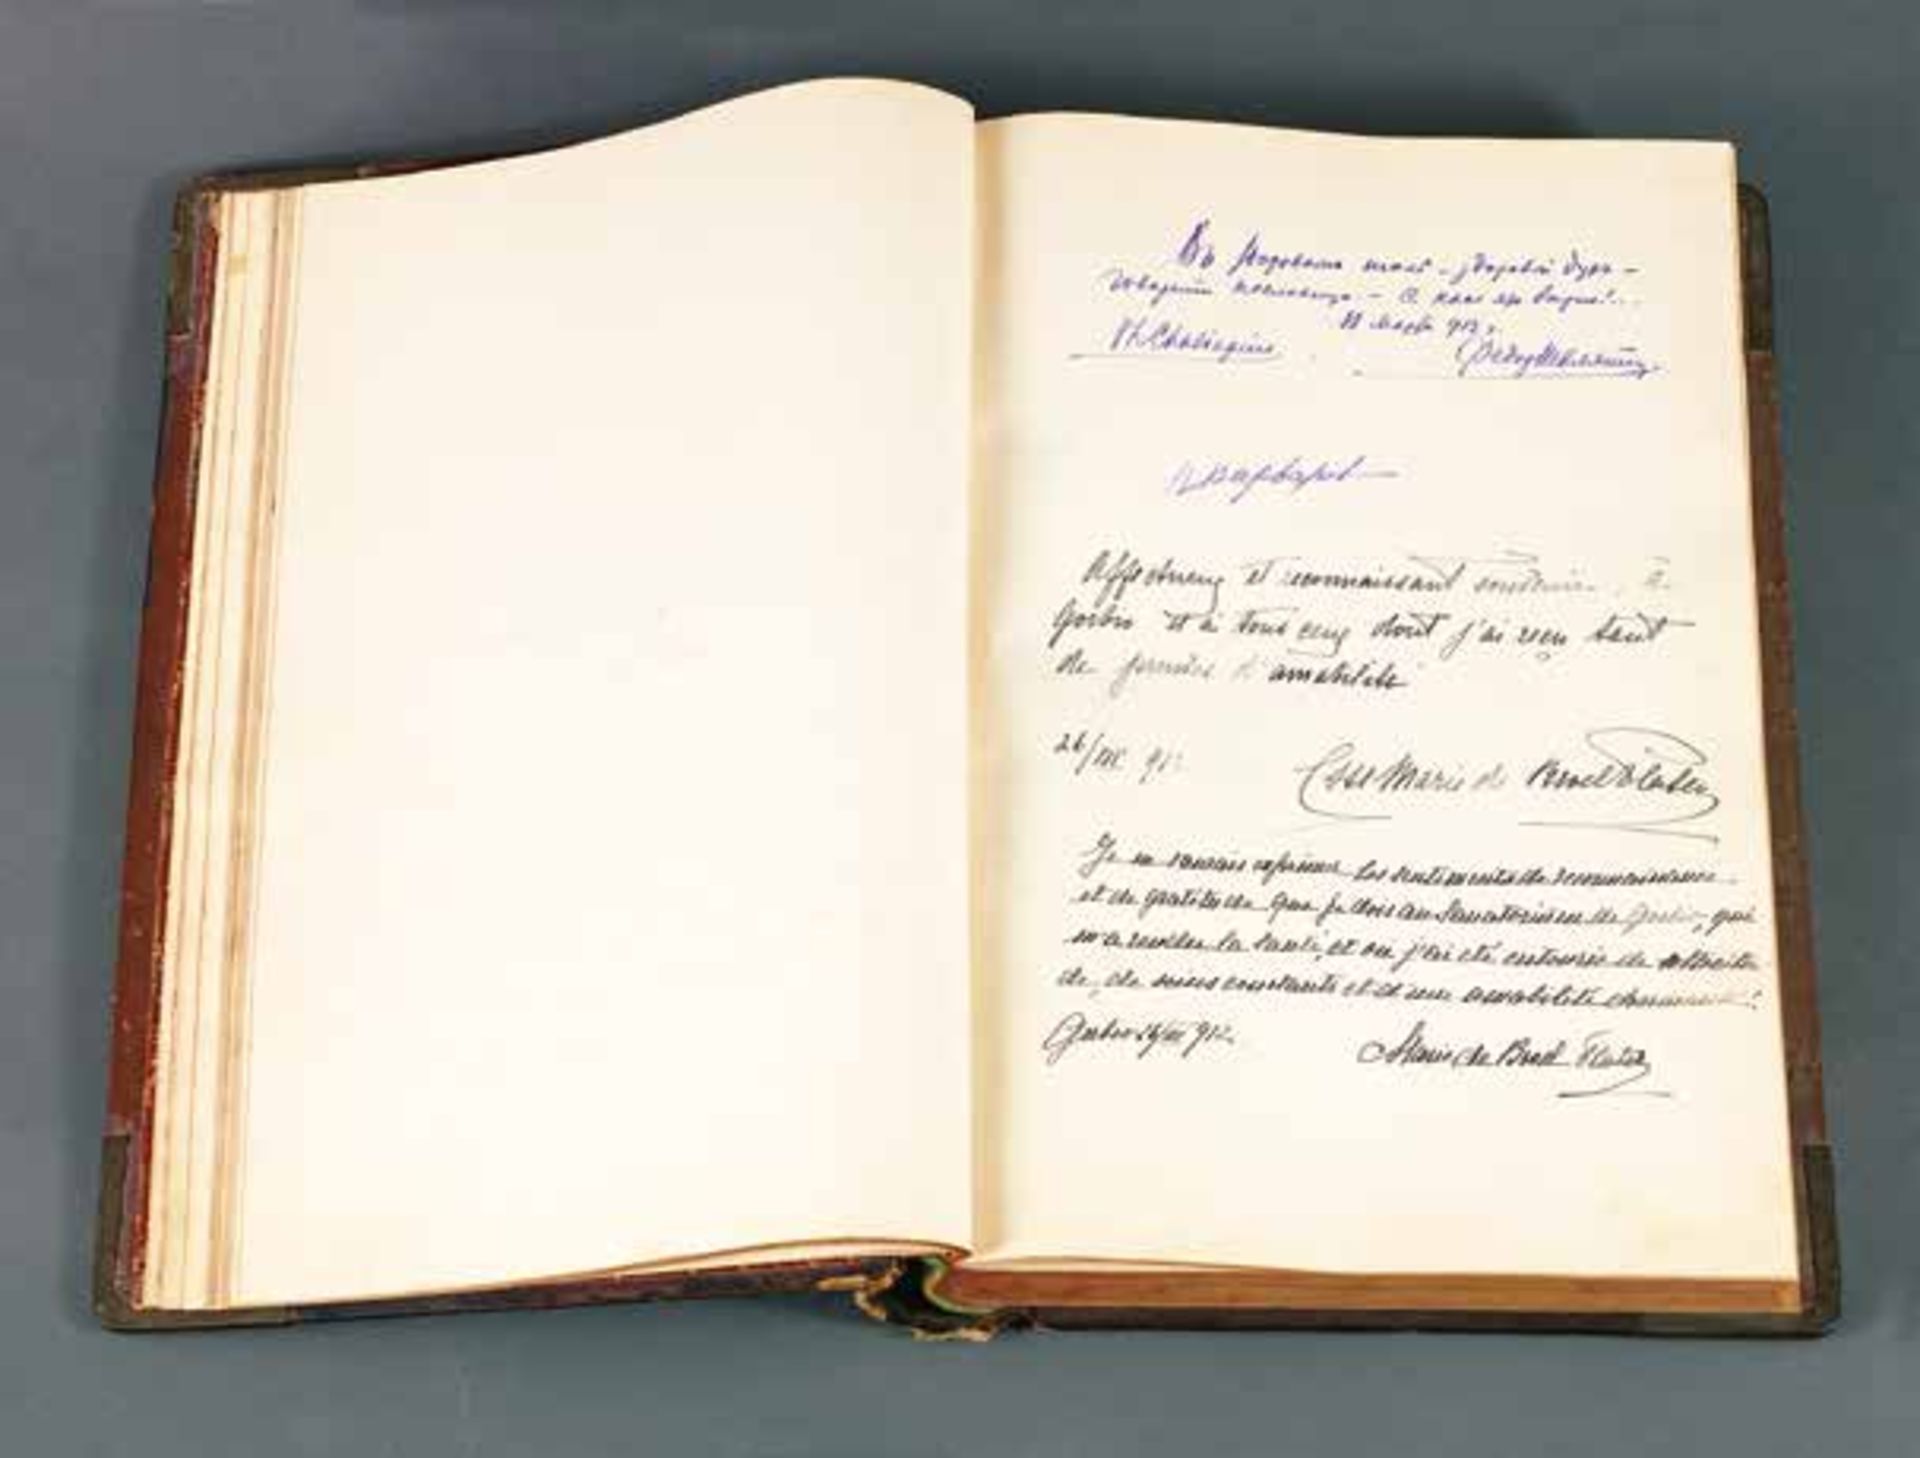 Въ здоровомъ тѣлѣ – здоровый духъ –
говоритъ пословица –
11 Марта 912 г.
Th. Chaliapine Федор Шаляпин
Affectueux et reconnaissant souvenir à
Gorbio et à tous ceux dont j'ai reçu tant
de preuves d'amabilité
26/III 912 Csse Marie de Broel Plater
Je ne saurais exprimer les sentiments de reconnaissance
et de gratitude que je dois au Sanatorium de Gorbio, qui
m'a rendu la santé, et où j'ai été entourée de sollicitu
de, de soins constants et d'une amabilité charmante!
Gorbio 26/III 912. Marie de Broel Plater